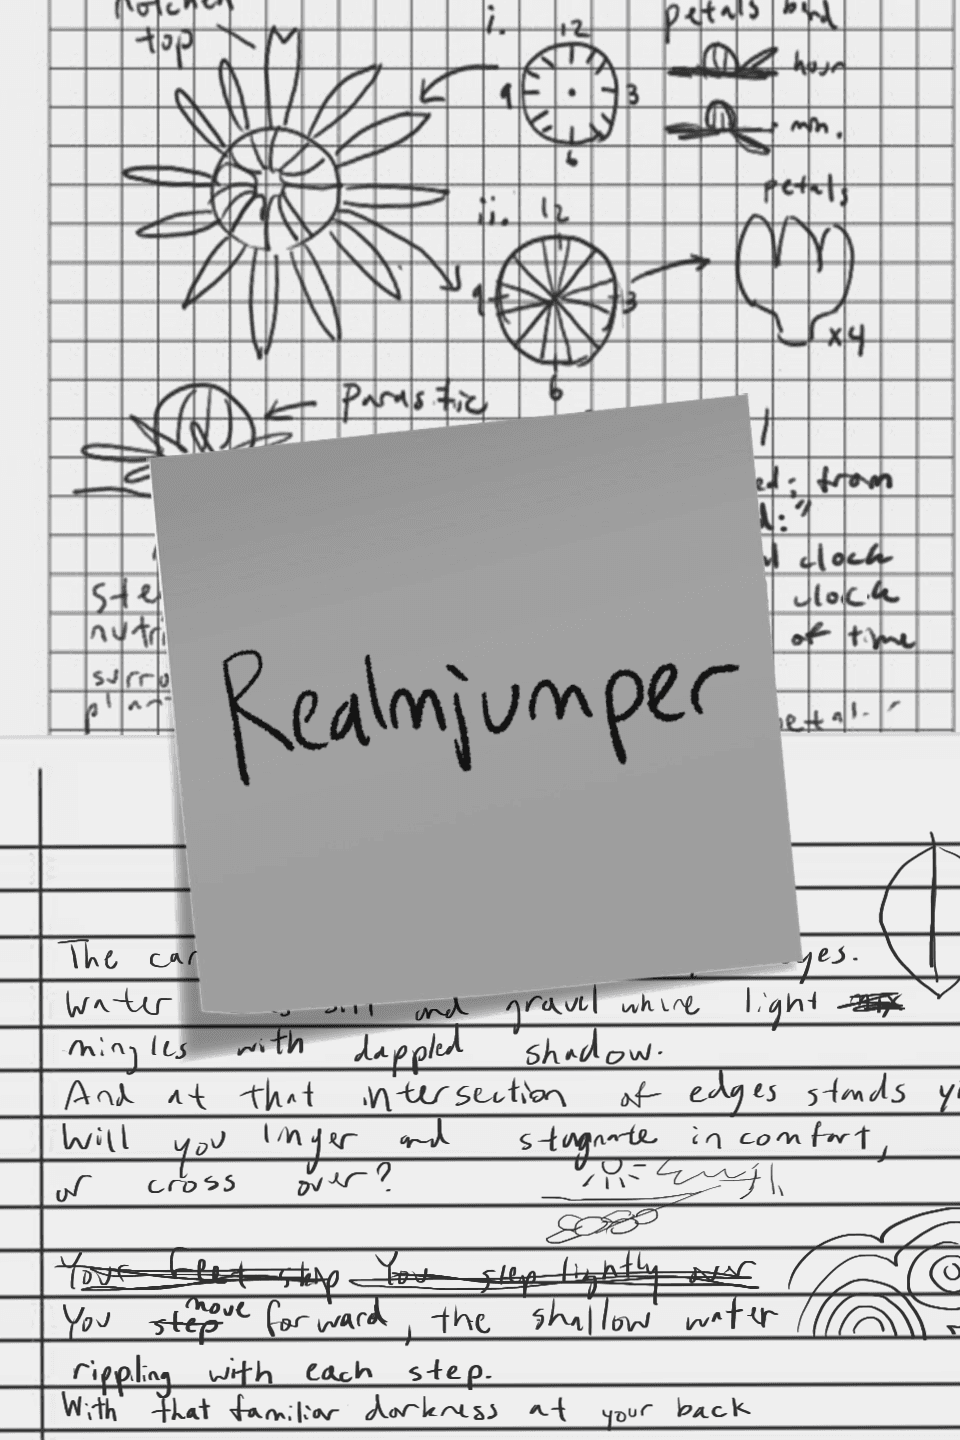 notched
top
i.
12
9
3
6
petals bind
hour
min.
ii.
12
9
3
6
petals
x4
Parasitic
ed: from
d:"
clock
clock
of time
ste
nutri
surro
The car yes.
water and gravel where light
mingles with dappled shadow.
And at that intersection of edges stands yo
Will you linger and stagnate in comfort,
or cross over?
Your feet step You step lightly over
move
You step forward, the shallow water
rippling with each step.
With that familiar darkness at your back
Realmjumper